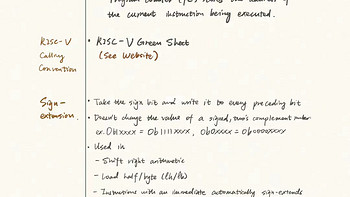 Program Counter (PC) holds the address of
the current instruction being executed.
RISC-V
Calling
Convention
• RISC-V Green Sheet
(See Website)
Sign-
extension.
• Take the sign bit and write it to every preceding bit
• Doesn't change the value of a signed, two's complement number
ex. 0b1xxxx = 0b1111xxx, 0b0xxxx = 0b0000xxxx
• Used in
– Shift right arithmetic
– Load half/byte (lh/lb)
– Instructions with an immediate automatically sign-extends